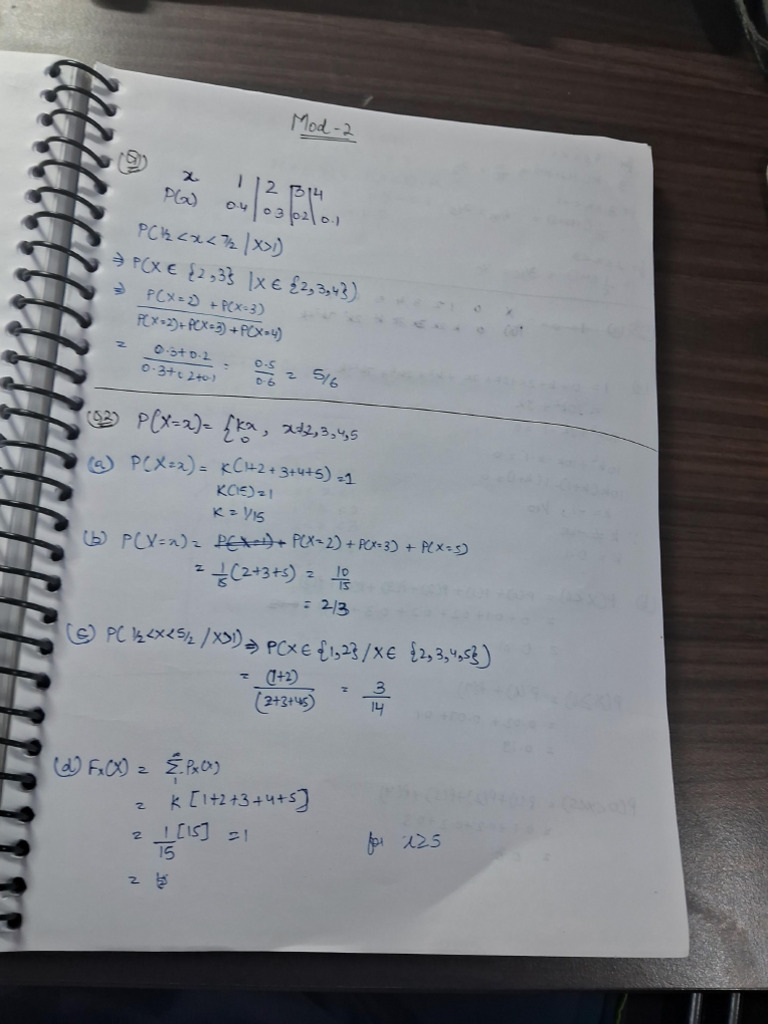 Mod-2
Q1
x 1 2 3 4
P(x) 0.4 0.3 0.2 0.1
P(1/2 < x < 7/2 | X>1)
⇒ P(X ∈ {2,3} | X ∈ {2,3,4})
⇒ P(X=2) + P(X=3)
P(X=2)+P(X=3)+P(X=4)
= 0.3+0.2 / 0.3+0.2+0.1 = 0.5/0.6 = 5/6
Q2 P(X=x) = { kx, x=1,2,3,4,5
0
(a) P(X=x) = K(1+2+3+4+5) = 1
K(15) = 1
K = 1/15
(b) P(X=x) = P(X=1)+ P(X=2) + P(X=3) + P(X=5)
= 1/15 (2+3+5) = 10/15
= 2/3
(c) P(1/2<x<5/2 / X>1) ⇒ P(X ∈ {1,2} / X ∈ {2,3,4,5})
= (1+2) / (2+3+4+5) = 3/14
(d) Fx(X) = Σ Px(x)
1
= K [1+2+3+4+5]
= 1/15 [15] = 1 for x≥5
=